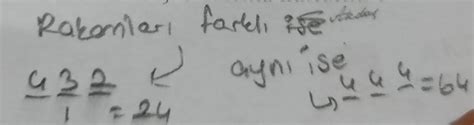 Rakamları farklı ise
4 3 2
1 = 24
aynı ise
4 4 4 = 64